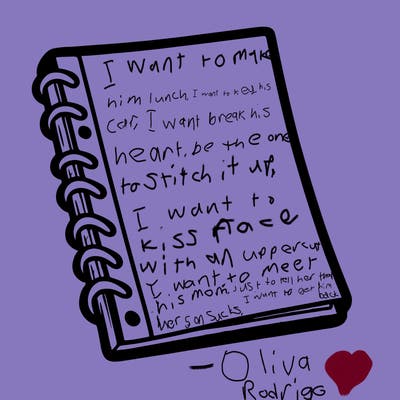 I want to make
him lunch, I want to key his
car, I want break his
heart, be the one
to stitch it up,
I want to
kiss face
with an uppercut
I want to meet
his mom, just to tell her
her son sucks,
I want to get him
back
-Oliva
Rodrigo